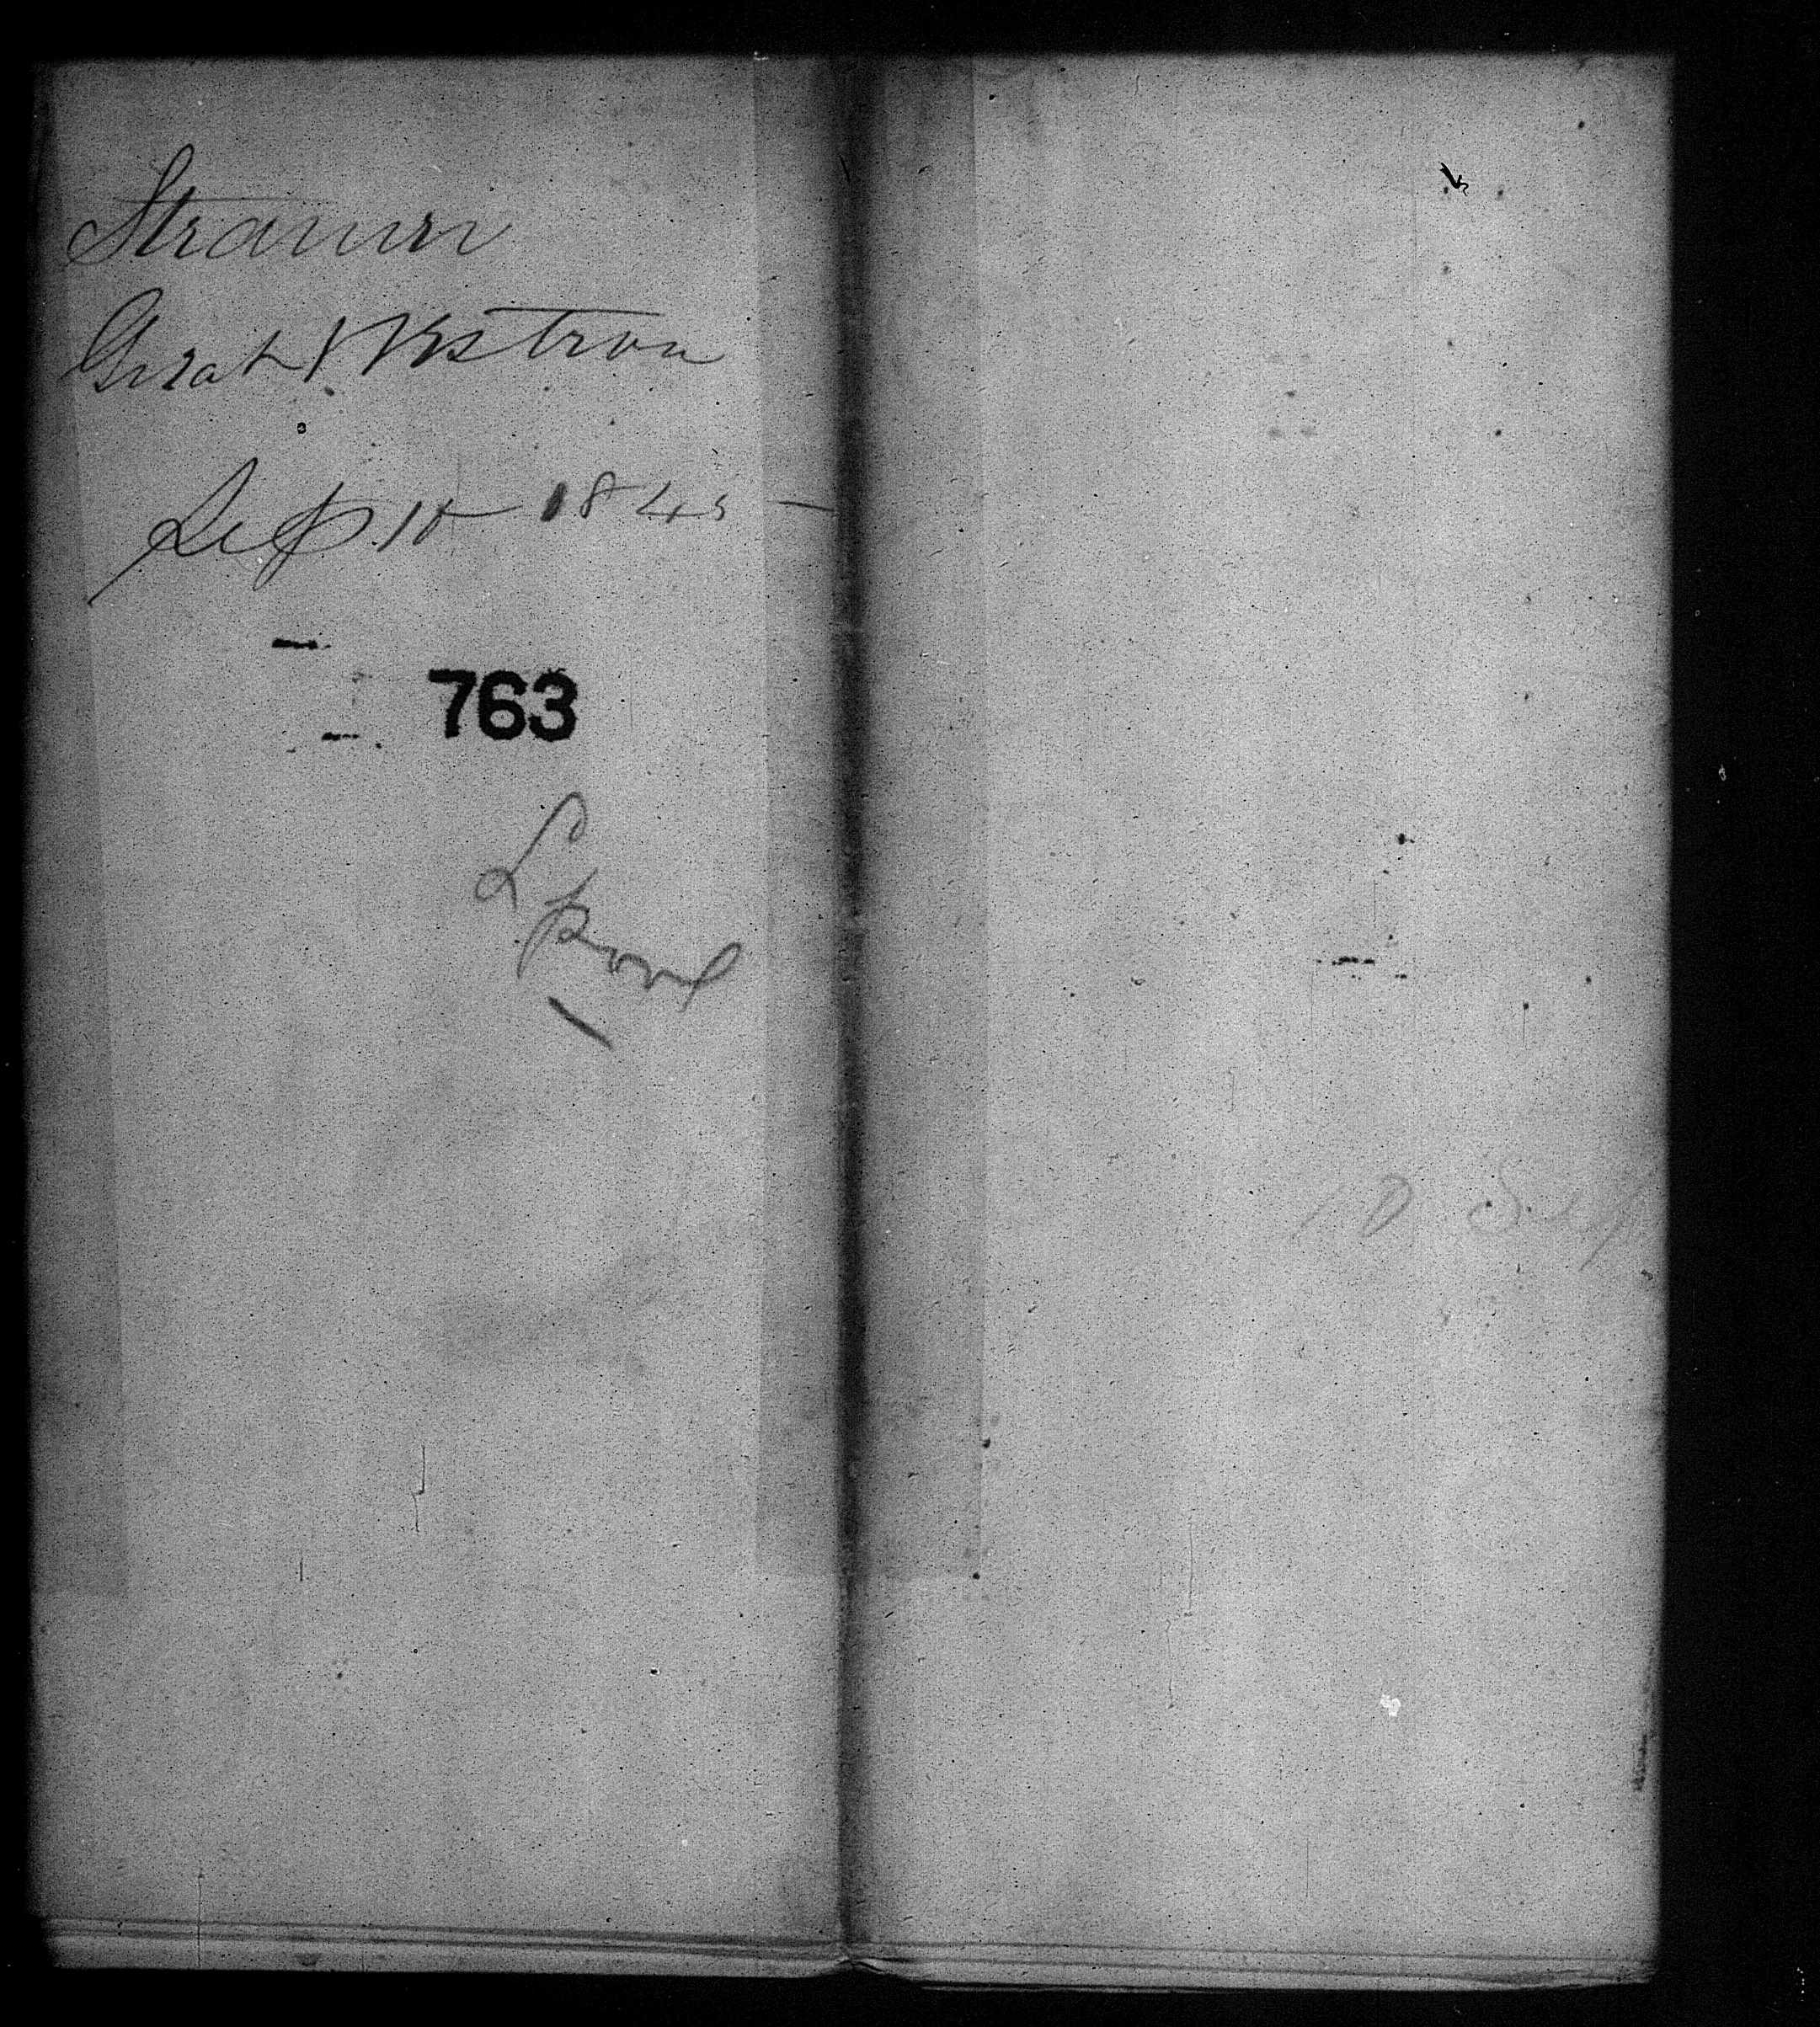 Steamer
Great Western
Sep 10 1845 —
763
L pool
10 Sep